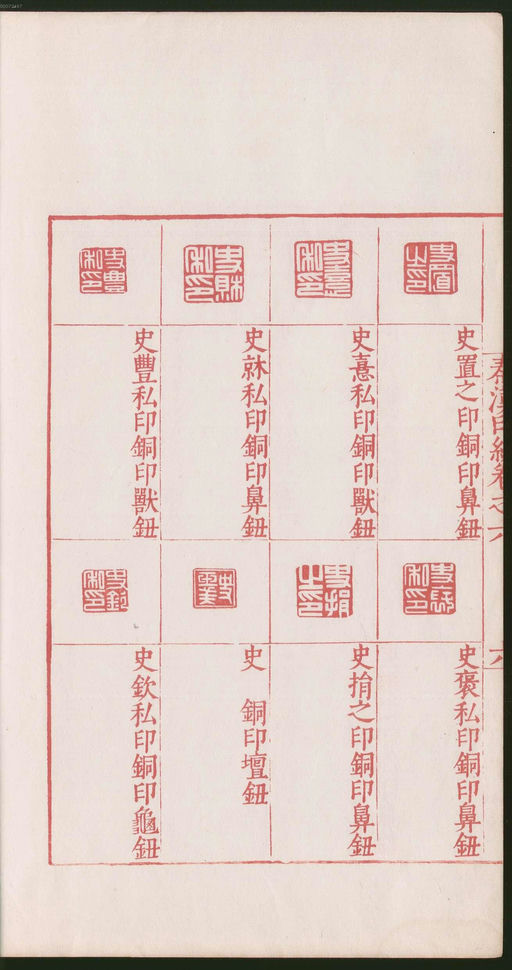 秦漢印統卷之六
六
史置之印銅印鼻鈕
史憙私印銅印獸鈕
史私印銅印鼻鈕
史豐私印銅印獸鈕
史褒私印銅印鼻鈕
史捐之印銅印鼻鈕
史 銅印壇鈕
史欽私印銅印龜鈕